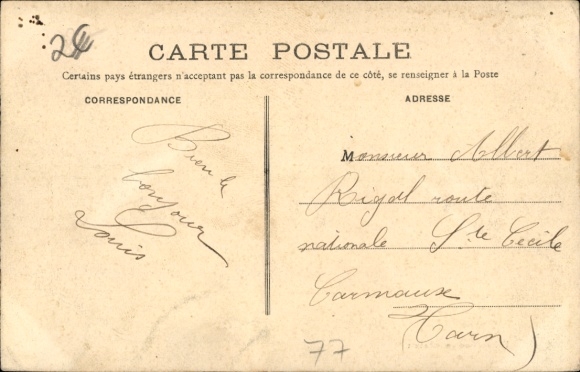 2€
CARTE POSTALE
Certains pays étrangers n'acceptant pas la correspondance de ce côté, se renseigner à la Poste
CORRESPONDANCE
Bien le
bonjour
Louis
ADRESSE
Monsieur Albert
Rigal route
nationale Ste Cécile
Carmaux
(Tarn)
77